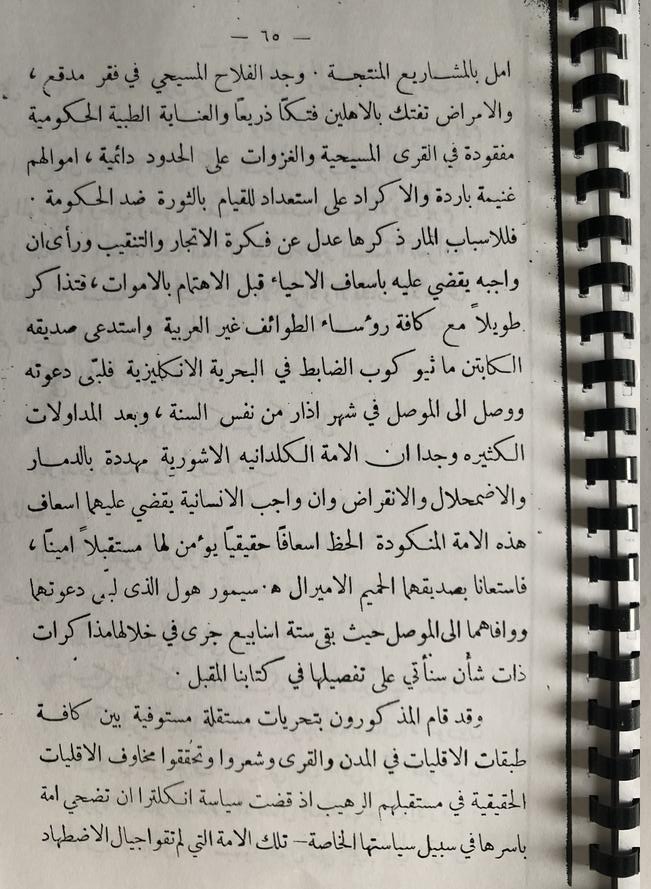 — ٦٥ —
امل بالمشاريع المنتجة . وجد الفلاح المسيحي في فقر مدقع ،
والامراض تفتك بالاهلين فتكاً ذريعاً والعناية الطبية الحكومية
مفقودة في القرى المسيحية والغزوات على الحدود دائمية ، اموالهم
غنيمة باردة والاكراد على استعداد للقيام بالثورة ضد الحكومة .
فللاسباب المار ذكرها عدل عن فكرة الاتجار والتنقيب ورأى ان
واجبه يقضي عليه باسعاف الاحياء قبل الاهتمام بالاموات ، فتذاكر
طويلاً مع كافة رؤساء الطوائف غير العربية واستدعى صديقه
الكابتن ماثيو كوب الضابط في البحرية الانكليزية فلبّى دعوته
ووصل الى الموصل في شهر اذار من نفس السنة ، وبعد المداولات
الكثيره وجدا ان الامة الكلدانيه الاشورية مهددة بالدمار
والاضمحلال والانقراض وان واجب الانسانية يقضي عليهما اسعاف
هذه الامة المنكودة الحظ اسعافاً حقيقيّاً يؤمن لها مستقبلاً اميناً ،
فاستعانا بصديقهما الحميم الاميرال ه . سيمور هول الذى لبى دعوتهما
ووافاهما الى الموصل حيث بقى ستة اسابيع جرى في خلالها مذاكرات
ذات شأن سنأتي على تفصيلها في كتابنا المقبل .
وقد قام المذكورون بتحريات مستقلة مستوفية بين كافة
طبقات الاقليات في المدن والقرى وشعروا وتحققوا مخاوف الاقليات
الحقيقية في مستقبلهم الرهيب اذ قضت سياسة انكلترا ان تضحي امة
باسرها في سبيل سياستها الخاصة — تلك الامة التي لم تقو اجيال الاضطهاد